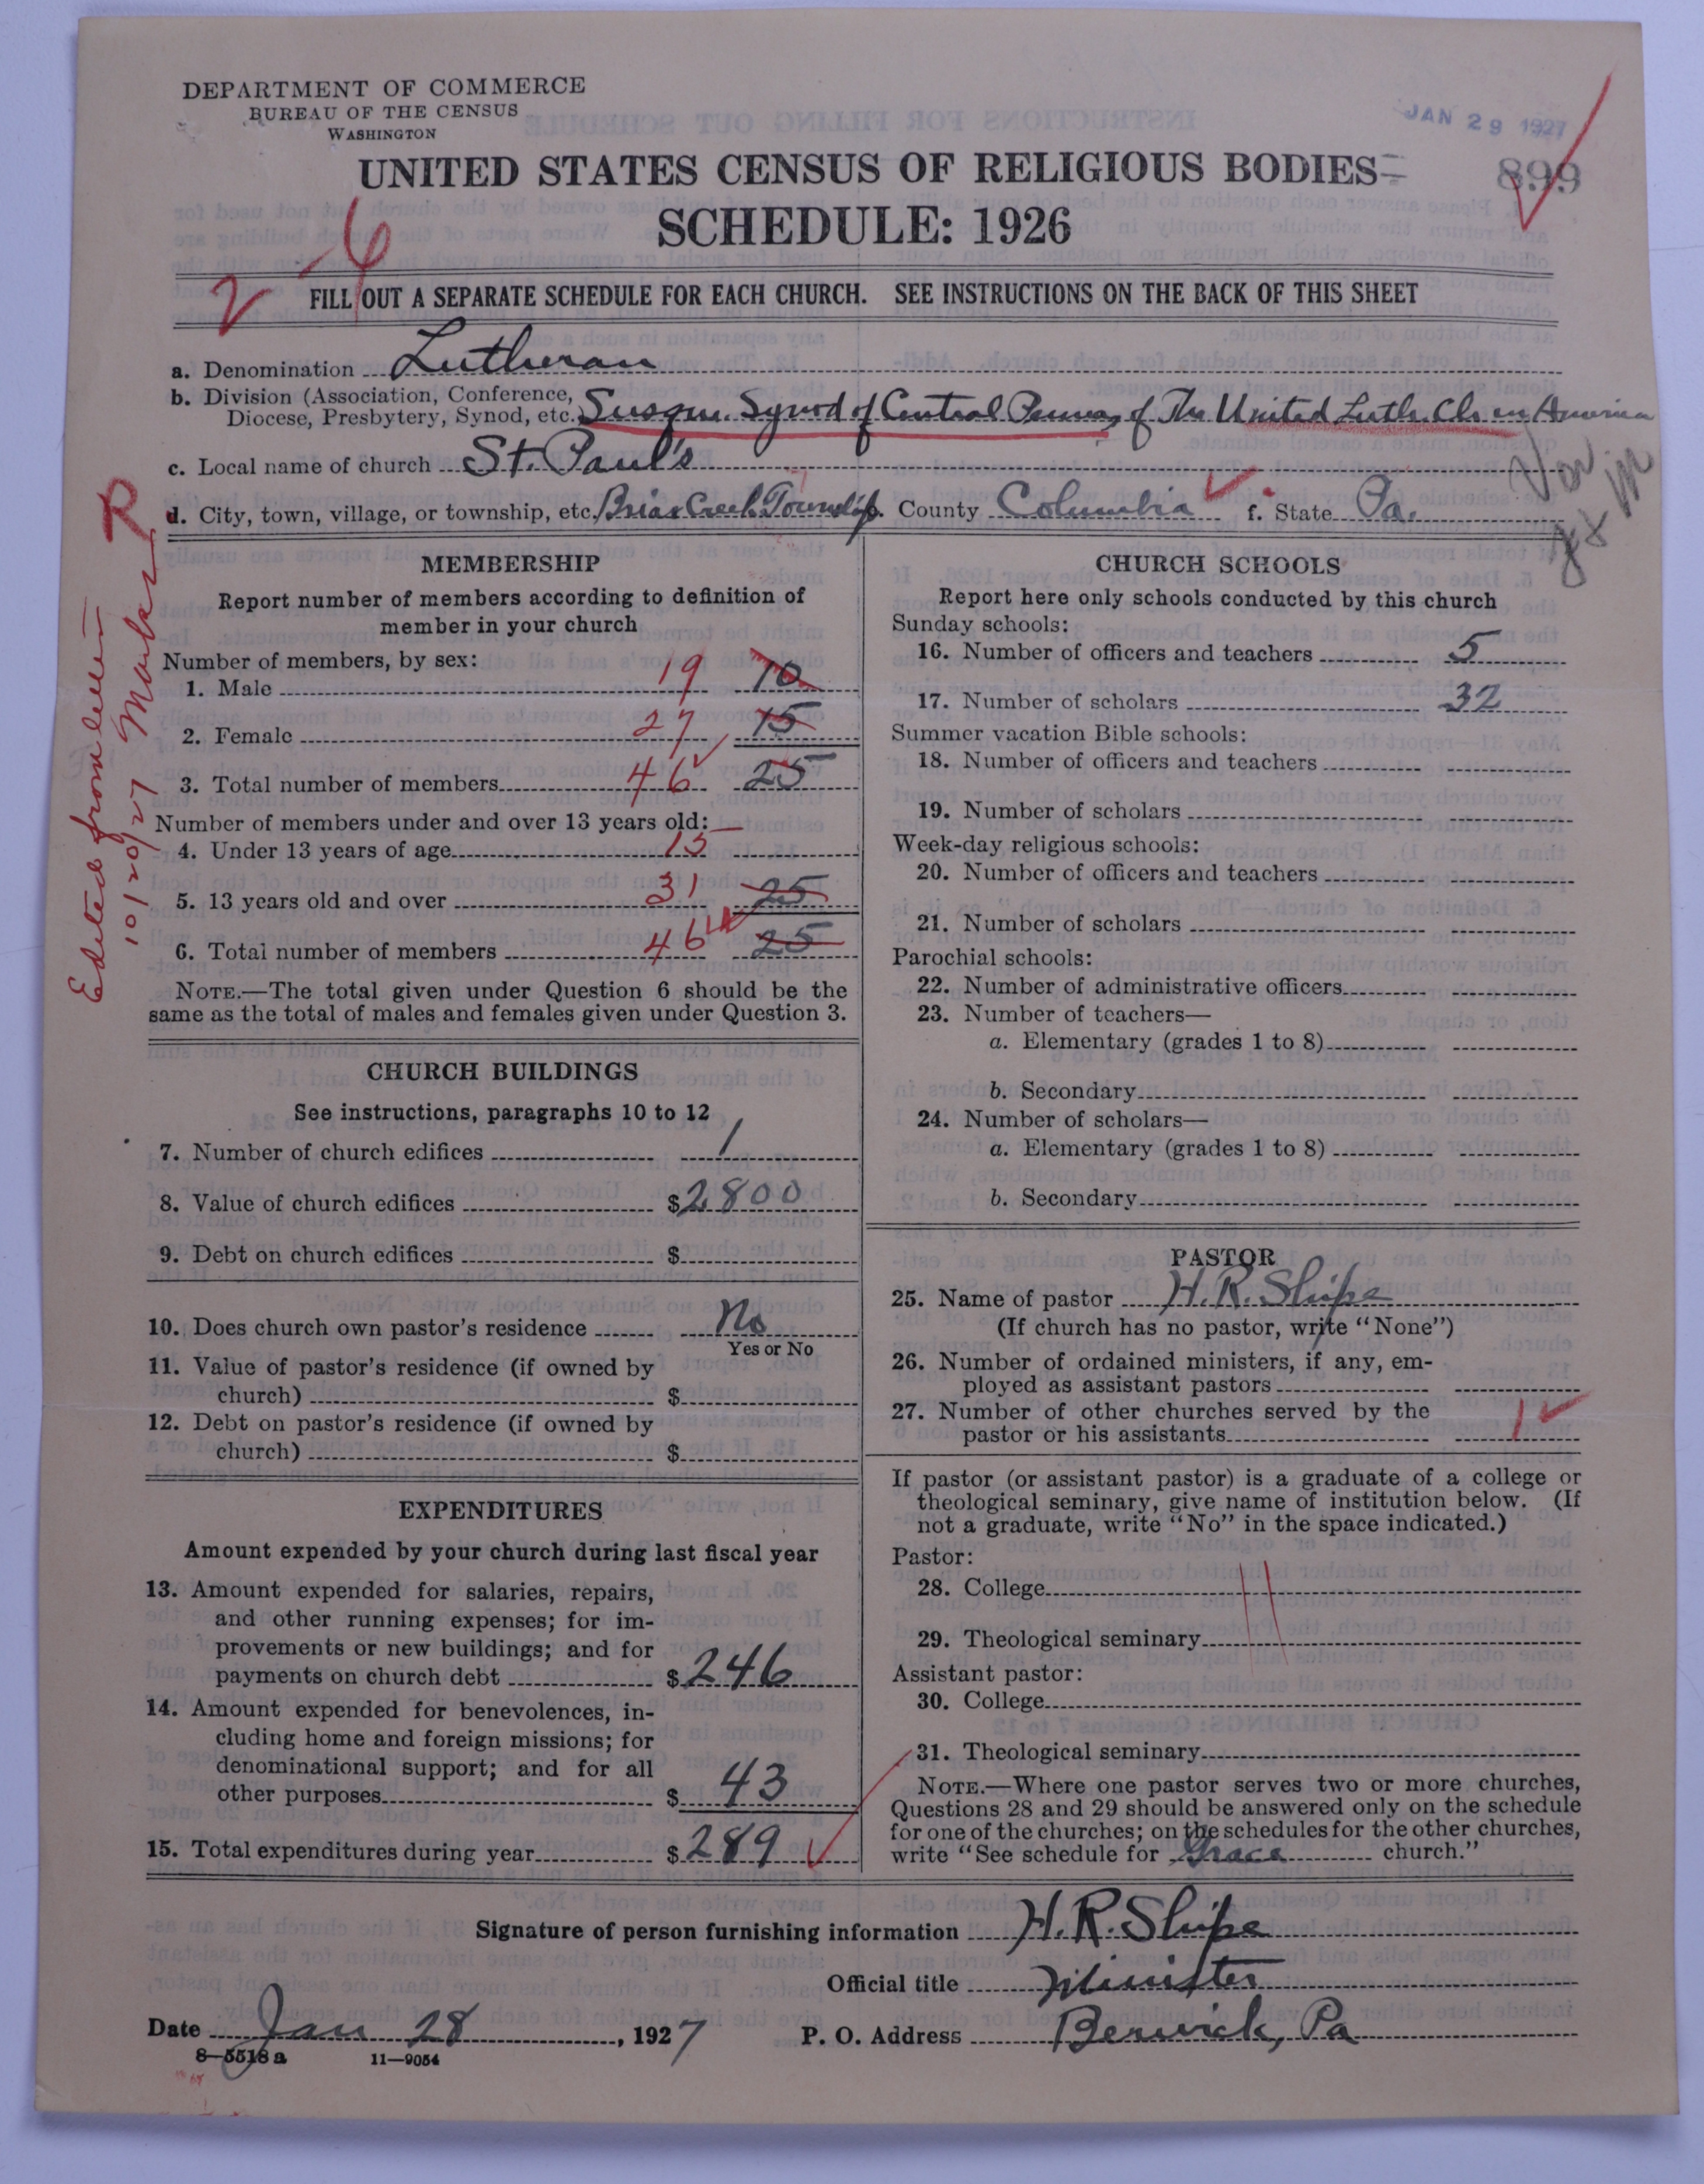 DEPARTMENT OF COMMERCE
BUREAU OF THE CENSUS
WASHINGTON
JAN 29 1927
UNITED STATES CENSUS OF RELIGIOUS BODIES
899
SCHEDULE: 1926
2-6
FILL OUT A SEPARATE SCHEDULE FOR EACH CHURCH. SEE INSTRUCTIONS ON THE BACK OF THIS SHEET
a. Denomination Lutheran
b. Division (Association, Conference,
Diocese, Presbytery, Synod, etc.) Susque. Synod of Central Penna, of The United Luth. Ch. in America
c. Local name of church St. Paul's
d. City, town, village, or township, etc. Briar Creek Township. County Columbia f. State Pa.
R
Edited from letter
10/20/27
MEMBERSHIP
Report number of members according to definition of
member in your church
Number of members, by sex:
1. Male 19 10
2. Female 27 15
3. Total number of members 46 25
Number of members under and over 13 years old:
4. Under 13 years of age 15
5. 13 years old and over 31 25
6. Total number of members 46 25
NOTE.—The total given under Question 6 should be the
same as the total of males and females given under Question 3.
CHURCH BUILDINGS
See instructions, paragraphs 10 to 12
7. Number of church edifices 1
8. Value of church edifices $2800
9. Debt on church edifices $
10. Does church own pastor's residence No
Yes or No
11. Value of pastor's residence (if owned by
church) $
12. Debt on pastor's residence (if owned by
church) $
EXPENDITURES
Amount expended by your church during last fiscal year
13. Amount expended for salaries, repairs,
and other running expenses; for im-
provements or new buildings; and for
payments on church debt $246
14. Amount expended for benevolences, in-
cluding home and foreign missions; for
denominational support; and for all
other purposes $43
15. Total expenditures during year $289
CHURCH SCHOOLS
Report here only schools conducted by this church
Sunday schools:
16. Number of officers and teachers 5
17. Number of scholars 32
Summer vacation Bible schools:
18. Number of officers and teachers
19. Number of scholars
Week-day religious schools:
20. Number of officers and teachers
21. Number of scholars
Parochial schools:
22. Number of administrative officers
23. Number of teachers—
a. Elementary (grades 1 to 8)
b. Secondary
24. Number of scholars—
a. Elementary (grades 1 to 8)
b. Secondary
PASTOR
25. Name of pastor H. R. Shipe
(If church has no pastor, write "None")
26. Number of ordained ministers, if any, em-
ployed as assistant pastors
27. Number of other churches served by the
pastor or his assistants 1
If pastor (or assistant pastor) is a graduate of a college or
theological seminary, give name of institution below. (If
not a graduate, write "No" in the space indicated.)
Pastor:
28. College
29. Theological seminary
Assistant pastor:
30. College
31. Theological seminary
NOTE.—Where one pastor serves two or more churches,
Questions 28 and 29 should be answered only on the schedule
for one of the churches; on the schedules for the other churches,
write "See schedule for Grace church."
Signature of person furnishing information H. R. Shipe
Official title Minister
Date Jan 28, 1927 P. O. Address Berwick, Pa
8—5518 a 11—9054